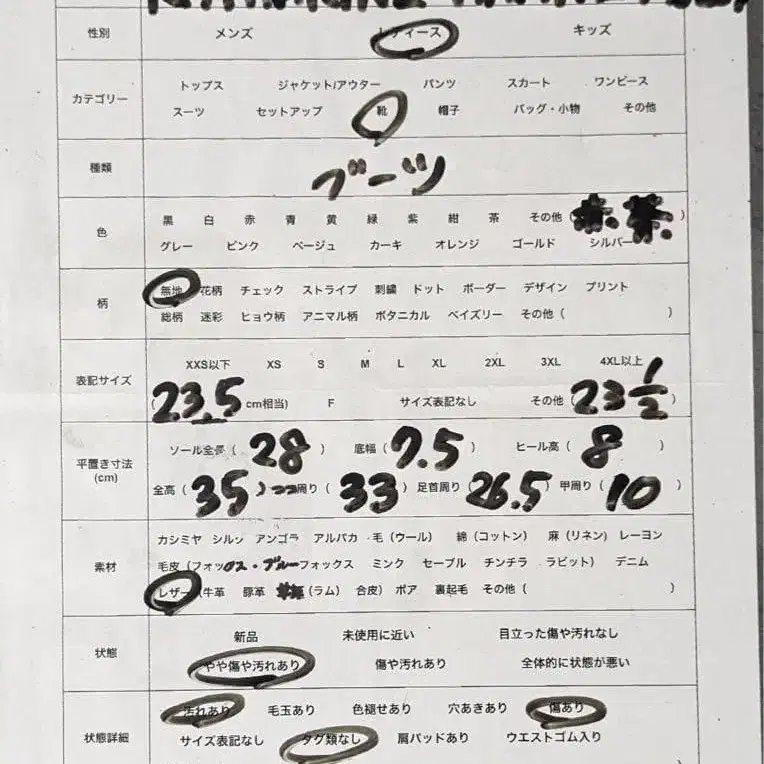 性別 メンズ レディース キッズ
カテゴリー
トップス ジャケット/アウター パンツ スカート ワンピース
スーツ セットアップ 靴 帽子 バッグ・小物 その他
種類 ブーツ
色
黒 白 赤 青 黄 緑 紫 紺 茶 その他 ( 赤.茶 )
グレー ピンク ベージュ カーキ オレンジ ゴールド シルバー
柄
無地 花柄 チェック ストライプ 刺繍 ドット ボーダー デザイン プリント
総柄 迷彩 ヒョウ柄 アニマル柄 ボタニカル ペイズリー その他 ( )
表記サイズ
XXS以下 XS S M L XL 2XL 3XL 4XL以上
( 23.5 cm相当) F サイズ表記なし その他 ( 23 1/2 )
平置き寸法
(cm)
ソール全長 ( 28 ) 底幅 ( 7.5 ) ヒール高 ( 8 )
全高 ( 35 ) 周り ( 33 ) 足首周り ( 26.5 ) 甲周り ( 10 )
素材
カシミヤ シルク アンゴラ アルパカ 毛 (ウール) 綿 (コットン) 麻 (リネン) レーヨン
毛皮 (フォックス・ブルーフォックス ミンク セーブル チンチラ ラビット) デニム
レザー (牛革 豚革 (ラム) 合皮) ボア 裏起毛 その他 ( )
状態
新品 未使用に近い 目立った傷や汚れなし
やや傷や汚れあり 傷や汚れあり 全体的に状態が悪い
状態詳細
汚れあり 毛玉あり 色褪せあり 穴あきあり 傷あり
サイズ表記なし タグ類なし 肩パッドあり ウエストゴム入り